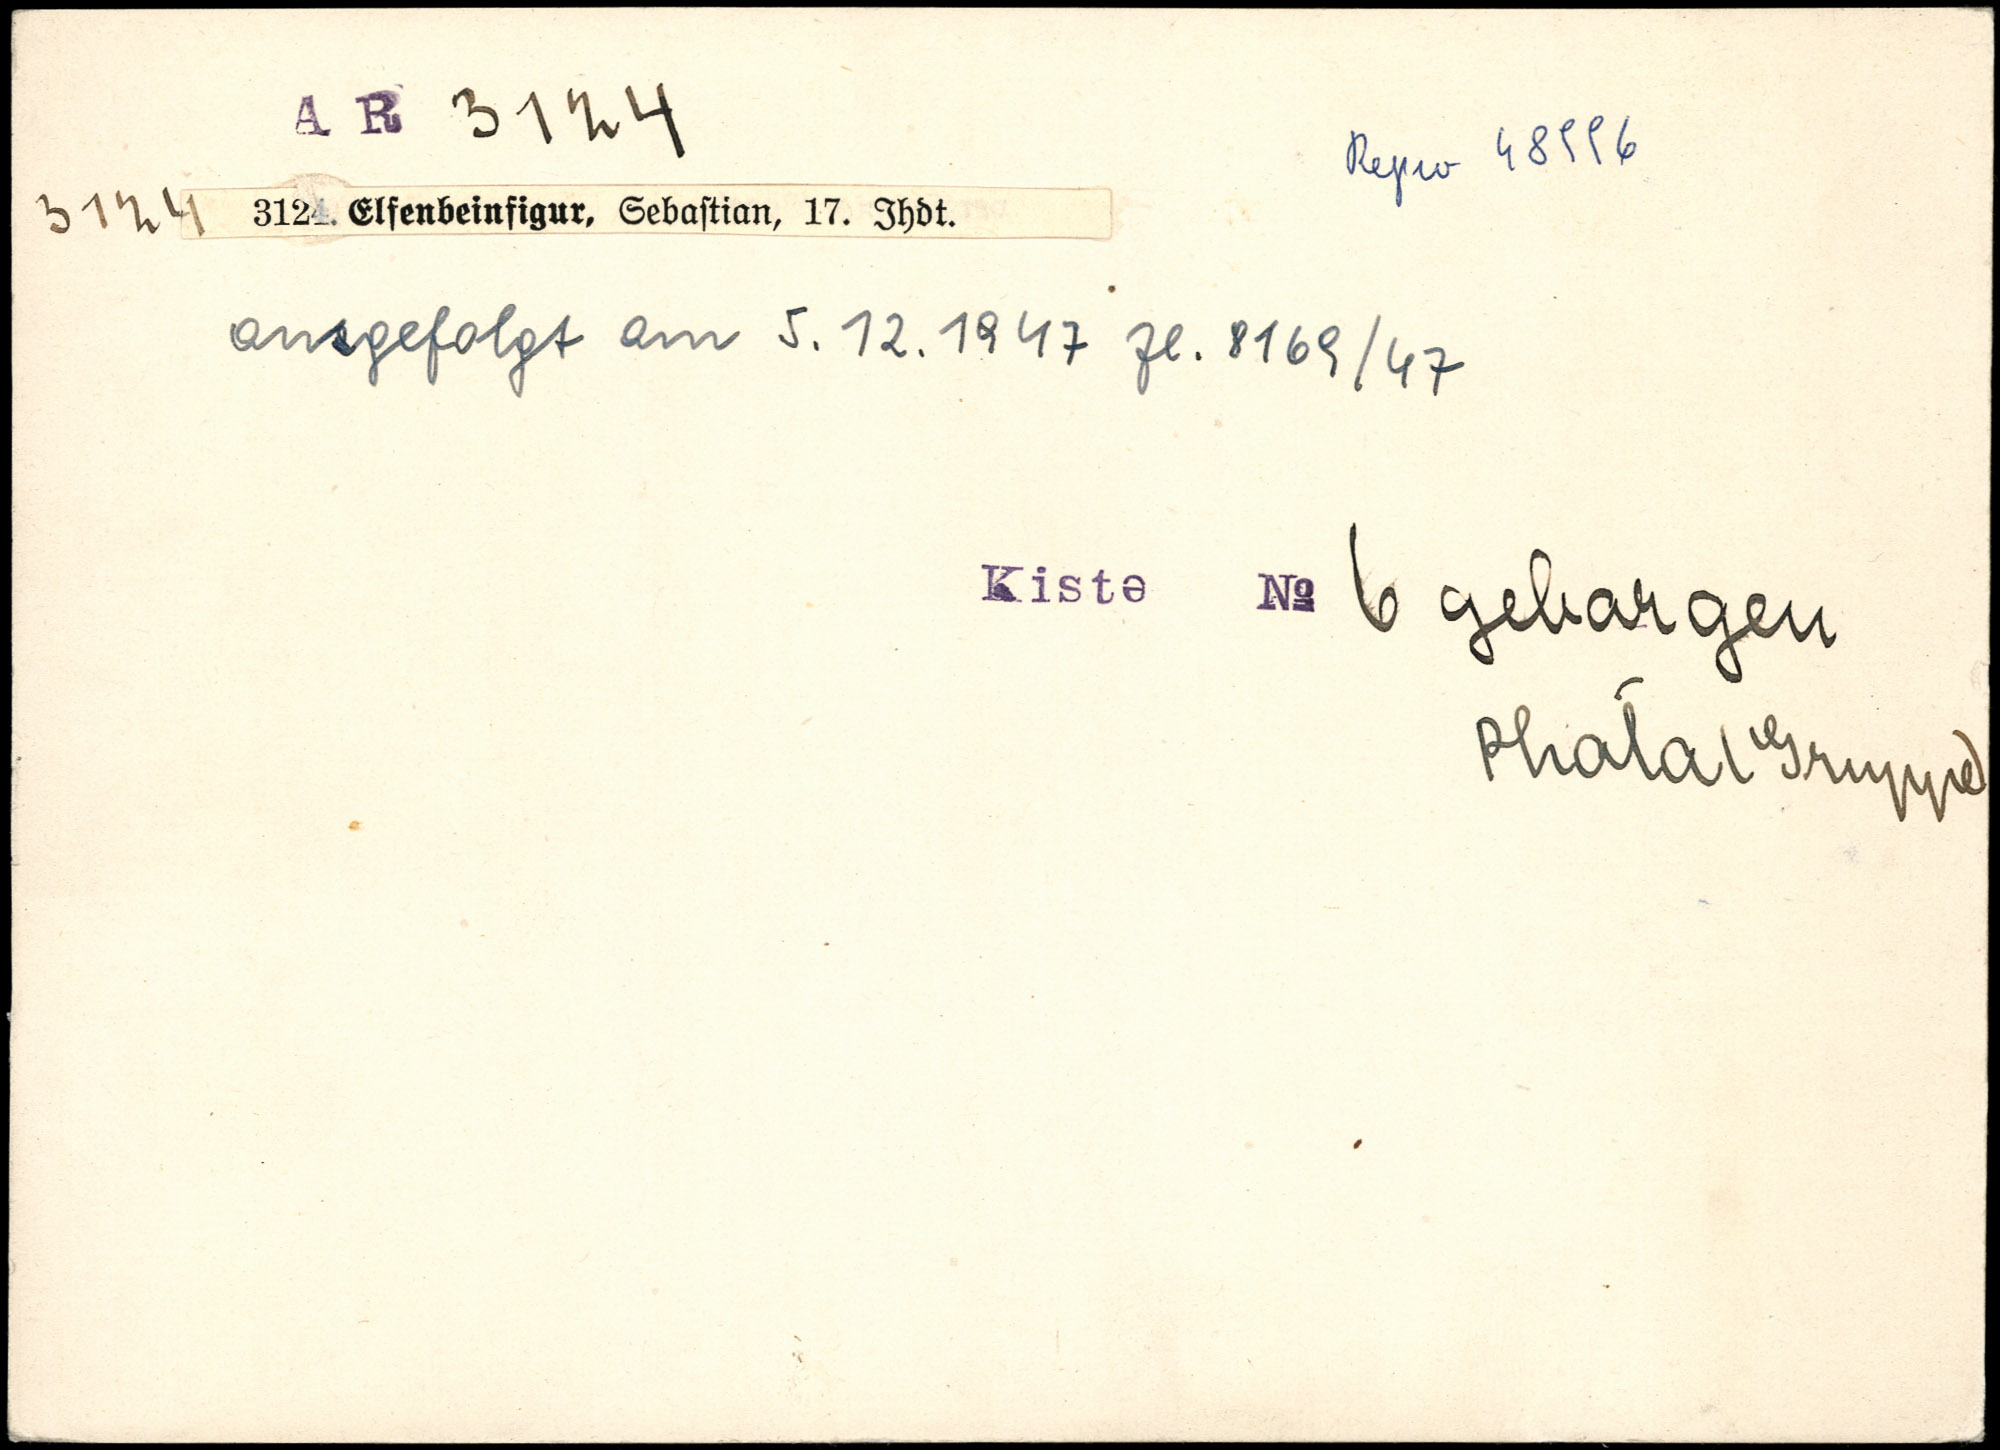 AR 3124
Repro 48996
3124 3124. Elfenbeinfigur, Sebastian, 17. Jhdt.
ausgefolgt am 5. 12. 1947 Zl. 8169/47
Kiste № 6 geborgen
Photo (Gruppe)